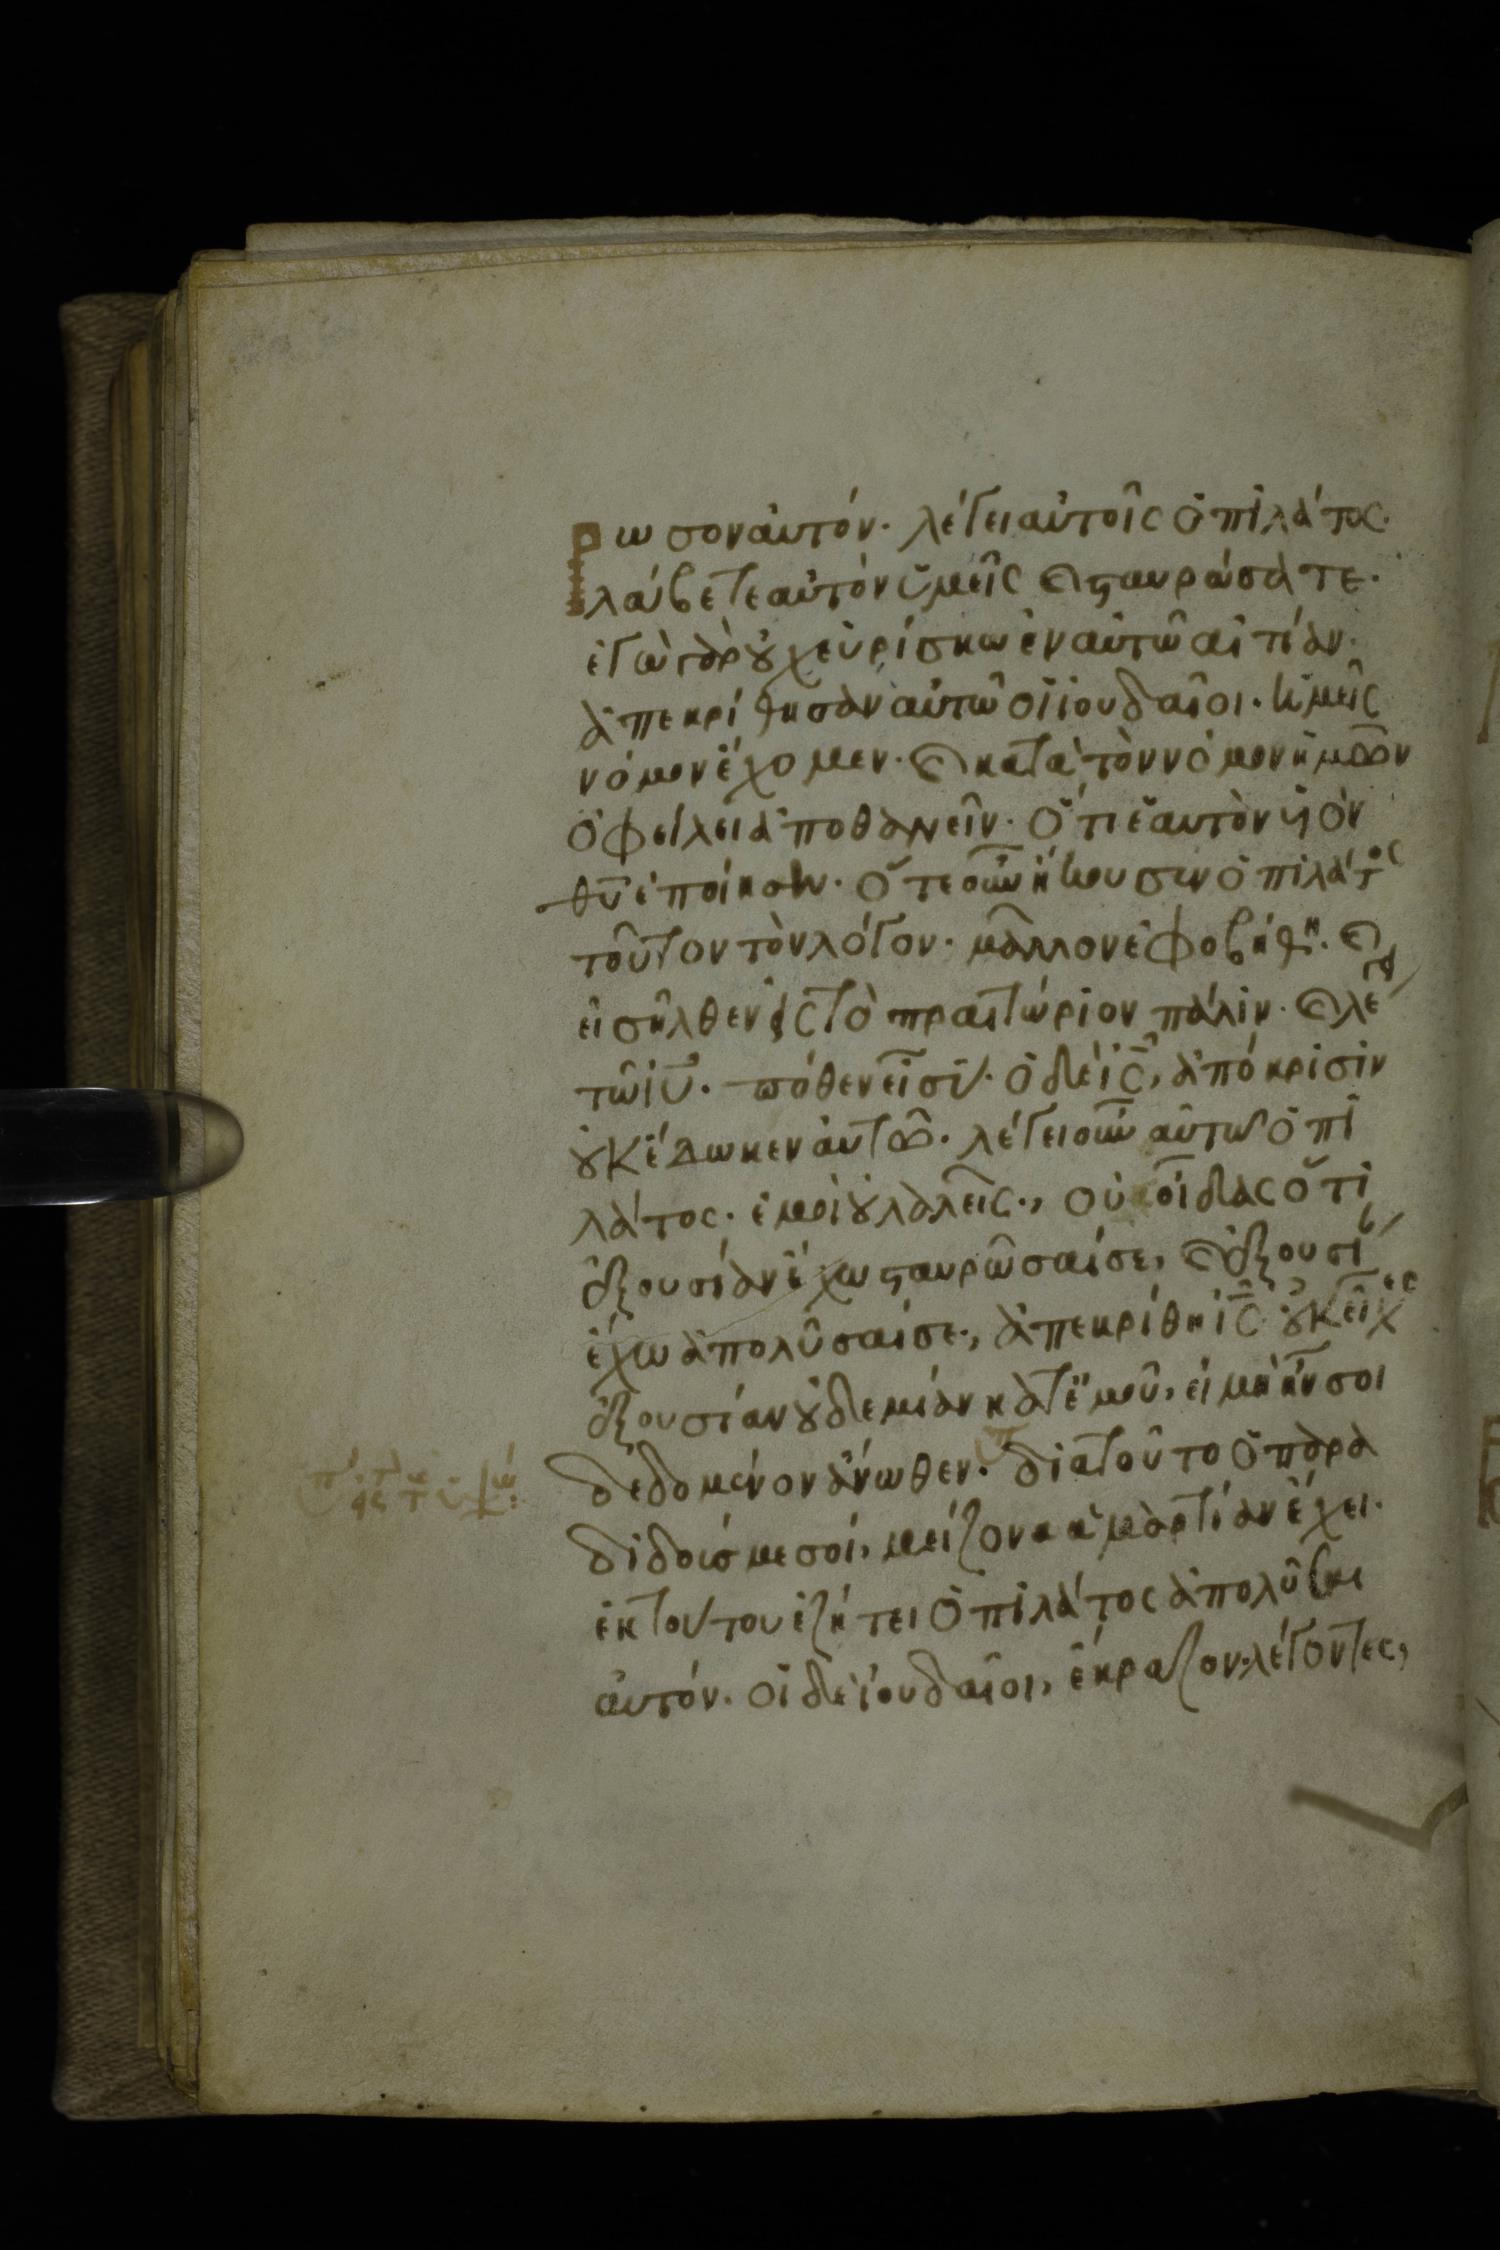 ρωσον αυτόν· λέγει αὐτοῖς ὁ πιλάτος·
λάβετε αὐτὸν ὑμεῖς ϗ ϛαυρώσατε·
ἐγὼ γὰρ ȣ̓χ εὑρίσκω ἐν αὐτῶ αἰτίαν·
ἀπεκρίθησαν αὐτῶ οἱ ἰουδαῖοι· ἡμεῖς
νόμον ἔχομεν· ϗ κατὰ τὸν νόμον ἡμῶν
ὀφείλει ἀποθανεῖν· ὅτι ἑαυτὸν ὑϊὸν
θῦ ἐποίησεν· ὅτε οὖν ἤκουσεν ὁ πιλάτος
τοῦτον τὸν λόγον· μᾶλλον ἐφοβήθη· ϗ
εἰσῆλθεν εἰς τὸ πραιτώριον πάλιν· ϗ λέγει
τῶ ἰῦ· πόθεν εἶ σύ· ὁ δὲ ἰς̄, ἀπόκρισιν
ȣ̓κ ἔδωκεν αὐτῶ· λέγει οὖν αὐτῶ ὁ πι
λάτος· ἐμοὶ ȣ̓ λαλεῖς., οὐκ οἶδας ὅτι
ἐξουσίαν ἔχω ϛαυρῶσαί σε, ϗ ἐξουσίαν
ἔχω ἀπολῦσαί σε., ἀπεκρίθη ἰς̄· ȣ̓κ εἶχες
ἐξουσίαν ȣ̓δεμίαν κατ' ἐμοῦ, εἰ μὴ ἦν σοι
δεδομένον ἄνωθεν· διατοῦτο ὁ παρα
διδούσ με σοί, μείζονα ἁμαρτίαν ἔχει·
ἐκ τούτου ἐζήτει ὁ πιλάτος ἀπολῦσαι
αὐτόν· οἱ δὲ ἰουδαῖοι, ἔκραζον λέγοντες,